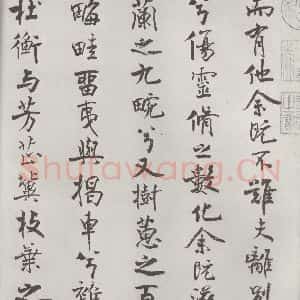 而有他余既不難夫離別
兮傷靈脩之數化余既滋
蘭之九畹兮又樹蕙之百
畮畦留夷與揭車兮雜
杜衡与芳芷冀枝葉之
Shufawang.CN